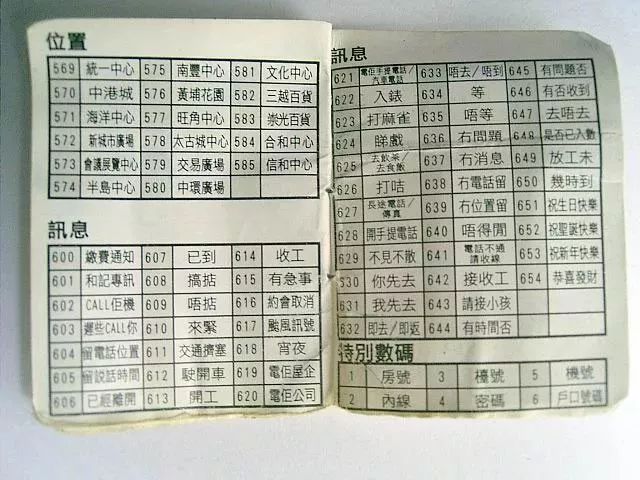 位置
569 統一中心 575 南豐中心 581 文化中心
570 中港城 576 黃埔花園 582 三越百貨
571 海洋中心 577 旺角中心 583 崇光百貨
572 新城市廣場 578 太古城中心 584 合和中心
573 會議展覽中心 579 交易廣場 585 信和中心
574 半島中心 580 中環廣場
訊息
600 繳費通知 607 已到 614 收工
601 和記專訊 608 搞掂 615 有急事
602 CALL佢機 609 唔掂 616 約會取消
603 遲些CALL你 610 來緊 617 颱風訊號
604 留電話位置 611 交通擠塞 618 宵夜
605 留說話時間 612 駛開車 619 電佢屋企
606 已經離開 613 開工 620 電佢公司
訊息
621 電佢手提電話/汽車電話 633 唔去/唔到 645 有問題否
622 入錶 634 等 646 有否收到
623 打麻雀 635 唔等 647 去唔去
624 睇戲 636 冇問題 648 是否已入數
625 去飲茶/去食飯 637 冇消息 649 放工未
626 打咭 638 冇電話留 650 幾時到
627 長途電話/傳真 639 冇位置留 651 祝生日快樂
628 開手提電話 640 唔得閒 652 祝聖誕快樂
629 不見不散 641 電話不通請收線 653 祝新年快樂
630 你先去 642 接收工 654 恭喜發財
631 我先去 643 請接小孩
632 即去/即返 644 有時間否
特別數碼
1 房號 3 檯號 5 機號
2 內線 4 密碼 6 戶口號碼